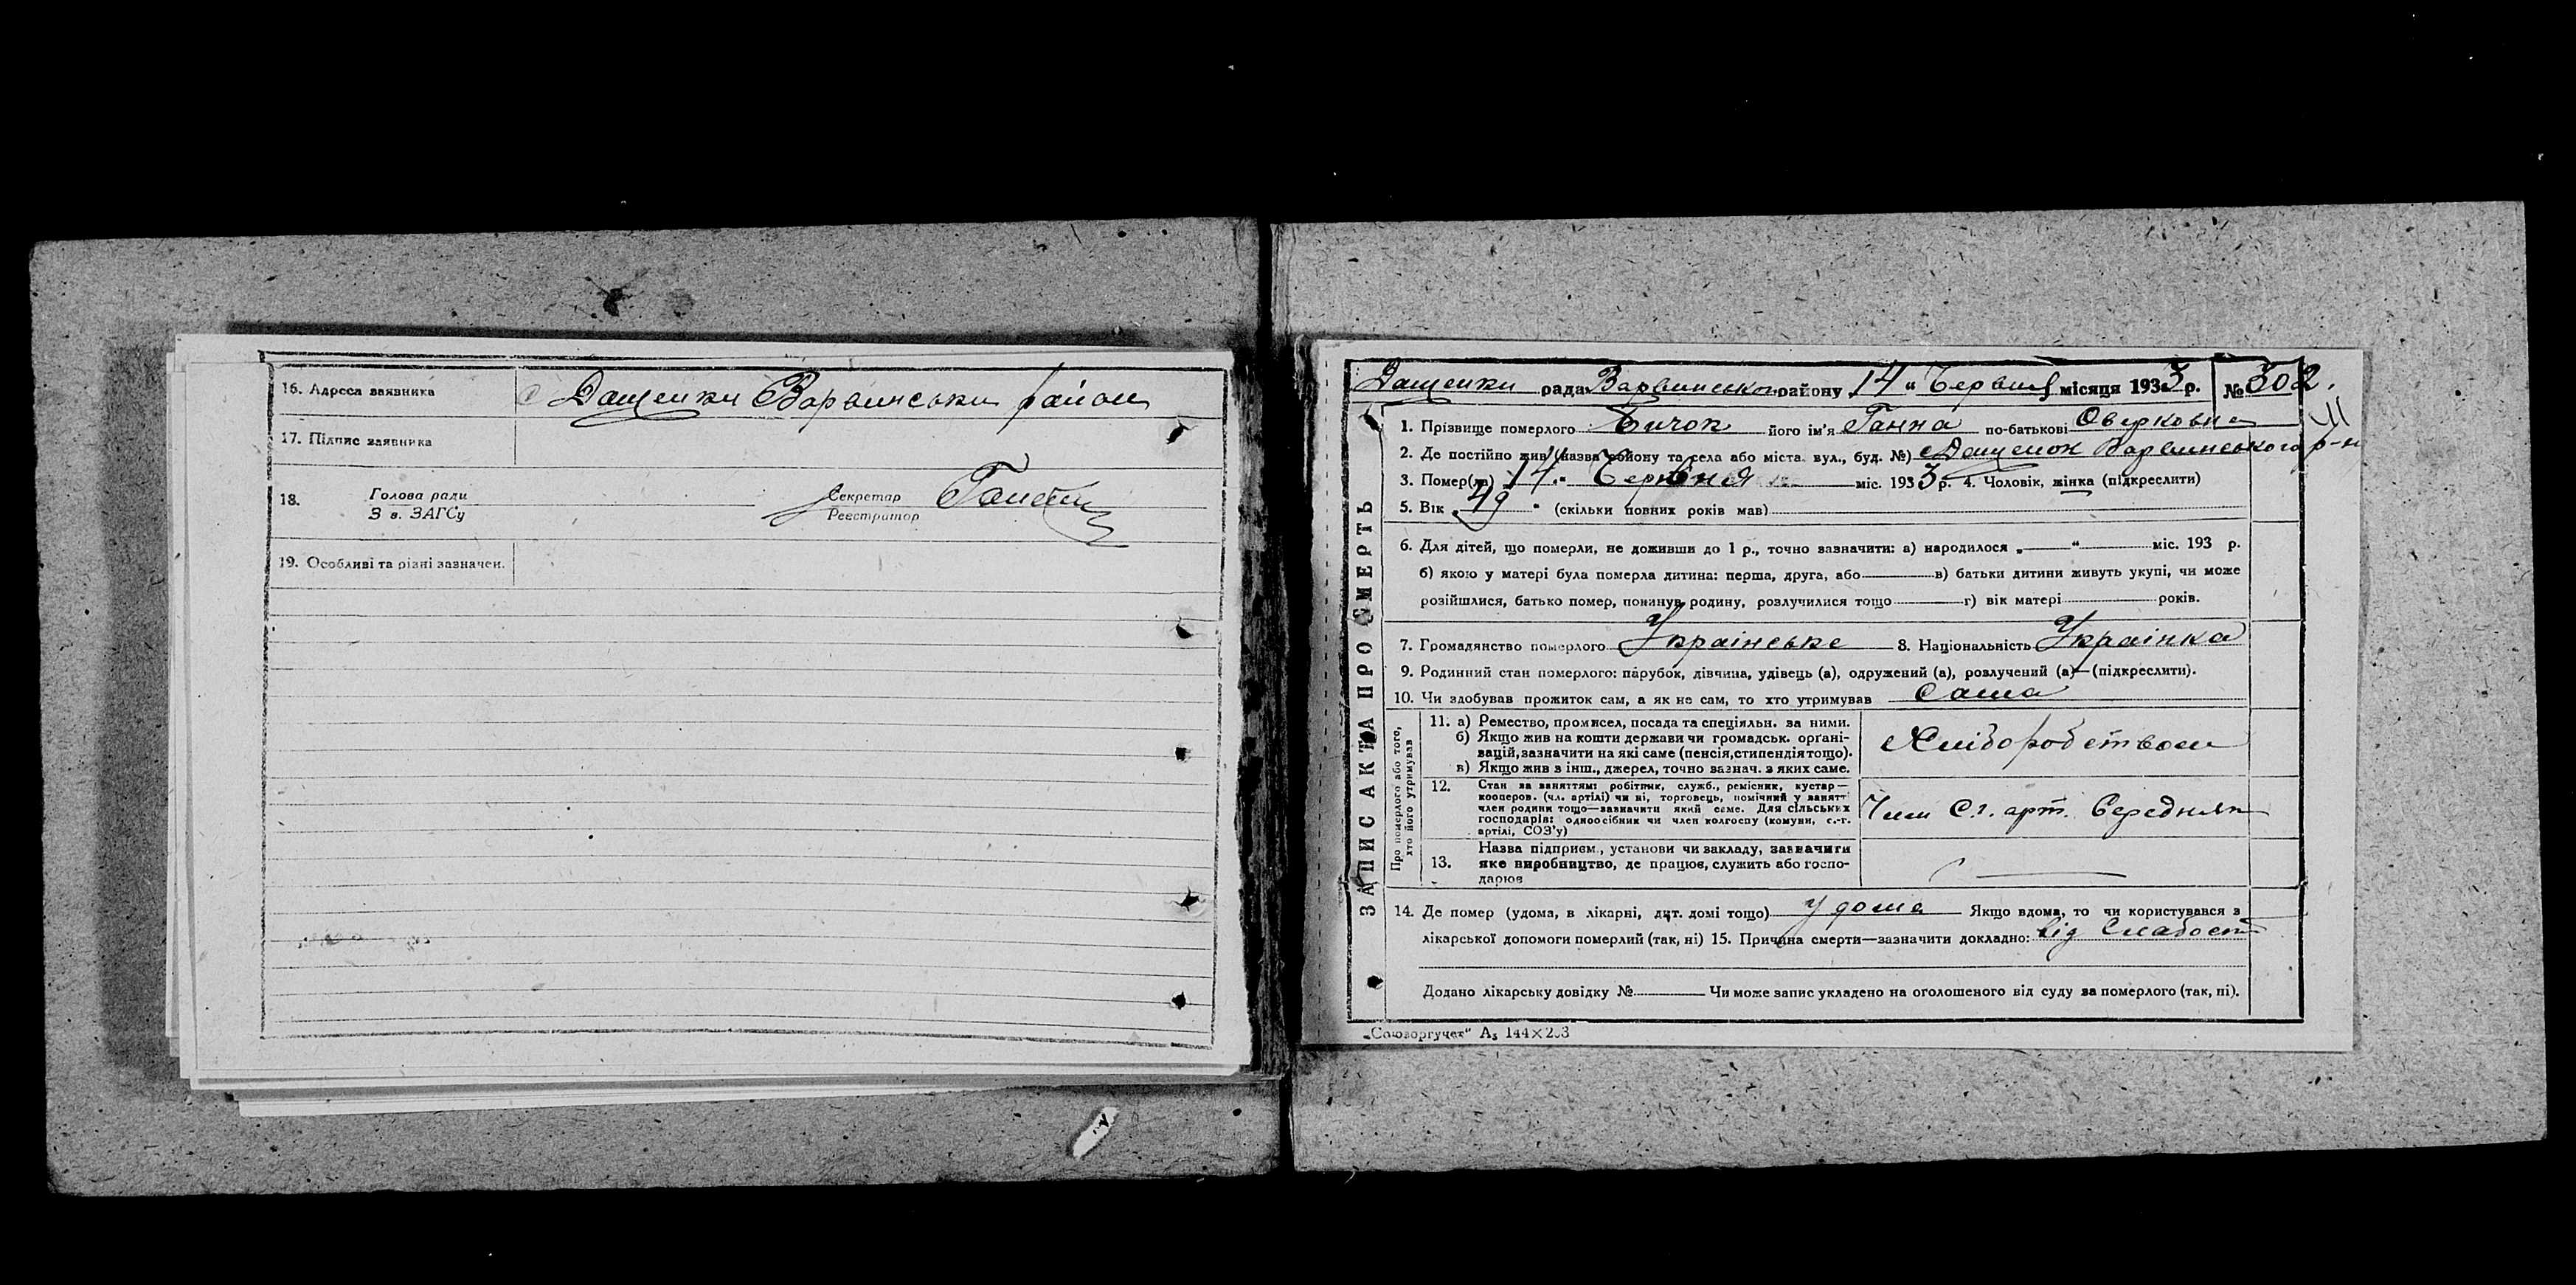 16. Адреса заявника с Дащенки Варвинськи район
17. Підпис заявника
18. Голова ради Секретар
З в. ЗАГСу Реєстратор
19. Особливі та різні зазначен.
ЗАПИС АКТА ПРО СМЕРТЬ
Дащенки рада Варвинського району 14 " Червня місяця 1933 р. № 302.
1. Прізвище померлого Бичок його ім'я Ганна по-батькові Оверковна
2. Де постійно жив (назва району та села або міста вул., буд. №) с Дащенок Варвинського р-н
3. Помер(ла) „ 14 " Червня міс. 1933 р. 4. Чоловік, жінка (підкреслити)
5. Вік „ 49 " (скільки повних років мав)
6. Для дітей, що померли, не доживши до 1 р., точно зазначити: а) народилося „ " міс. 193 р.
б) якою у матері була померла дитина: перша, друга, або в) батьки дитини живуть укупі, чи може
розійшлися, батько помер, покинув родину, розлучилися тощо г) вік матері років.
7. Громадянство померлого Українське 8. Національність Українка
9. Родинний стан померлого: парубок, дівчина, удівець (а), одружений (а), розлучений (а)—(підкреслити).
10. Чи здобував прожиток сам, а як не сам, то хто утримував сама
Про померлого або того,
хто його утримував
11. а) Ремество, промисел, посада та спеціяльн. за ними.
б) Якщо жив на кошти держави чи громадськ. орґані-
зацій, зазначити на які саме (пенсія, стипендія тощо).
в) Якщо жив з інш., джерел, точно зазнач. з яких саме.
Хліборобством
12. Стан за заняттямі робітник, служб., ремісник, кустар—
кооперов. (чл. артілі) чи ні, торговець, помічний у занятт
член родини тощо—зазначити який саме. Для сільських
господарів: одноосібник чи член колгоспу (комуни, с.-г.
артілі, СОЗ'у)
Член С.г. арт. Середняк
13. Назва підприєм., установи чи закладу, зазначити
яке виробництво, де працює, служить або госпо-
дарює
14. Де помер (удома, в лікарні, дит. домі тощо) у дома Якщо вдома, то чи користувався з
лікарської допомоги померлий (так, ні) 15. Причина смерти—зазначити докладно: від Слабост
Додано лікарську довідку № Чи може запис укладено на оголошеного від суду за померлого (так, ні).
„Союзоргучет" А5 144×203